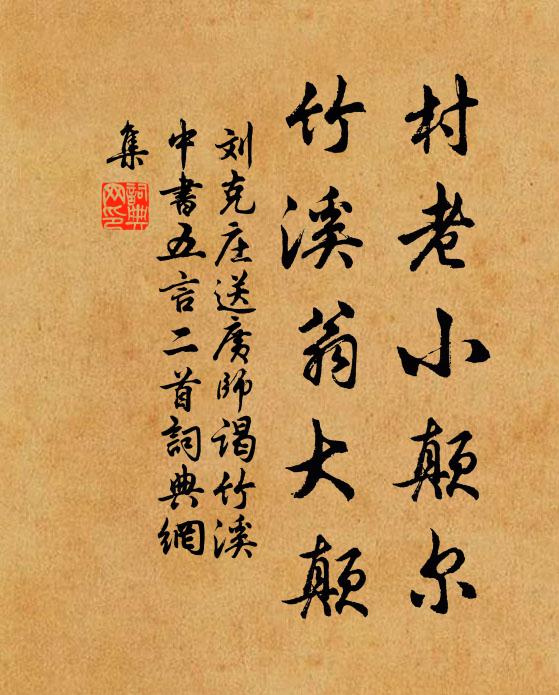 村老小颠尔
竹溪翁大颠
刘克庄送广师谒竹溪
中书五言二首词典網
集
詞典
网印